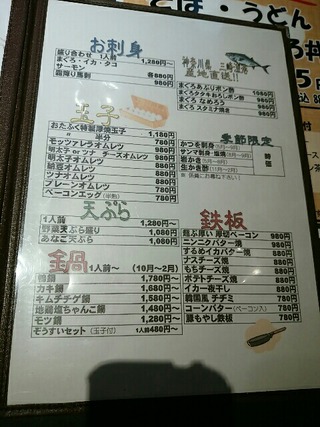 そば・うどん
お刺身
盛り合わせ 1人前 1,280円～
まぐろ・イカ・タコ
サーモン 各880円
霜降り馬刺 980円
神奈川県 三崎直送
産地直送!!
まぐろあぶりポン酢
まぐろタタキおろしポン酢 980円
まぐろ なめろう 980円
まぐろスタミナ焼き
玉子
おたふく特製厚焼玉子 1,180円
〃 半分 780円
モッツァレラオムレツ 880円
明太子 or ツナ チーズオムレツ 980円
明太子オムレツ 880円
納豆オムレツ
ツナオムレツ
プレーンオムレツ
ベーコンエッグ（半熟） 780円
季節限定
かつを刺身
サンマ刺身・塩焼
岩かき
生かき酢
時価
天ぷら
1人前 1,280円～
野菜天ぷら盛り 1,080円
あなご天ぷら 1,080円
鉄板
超ぶ厚い 厚切ベーコン 980円
ニンニクバター焼 980円
するめイカバター焼 980円
ナスチーズ焼 780円
もちチーズ焼 780円
ポテトチーズ焼 780円
イカ一夜干し 880円
韓国風 チヂミ 780円
コーンバター（ベーコン入） 780円
豚もやし鉄板 780円
鍋 1人前～ （10月～2月）
鴨鍋 1,780円～
カキ鍋 1,680円～
キムチチゲ鍋 1,580円～
地鶏塩ちゃんこ鍋 1,480円～
モツ鍋 1,280円～
ぞうすいセット（玉子付） 1人前480円～